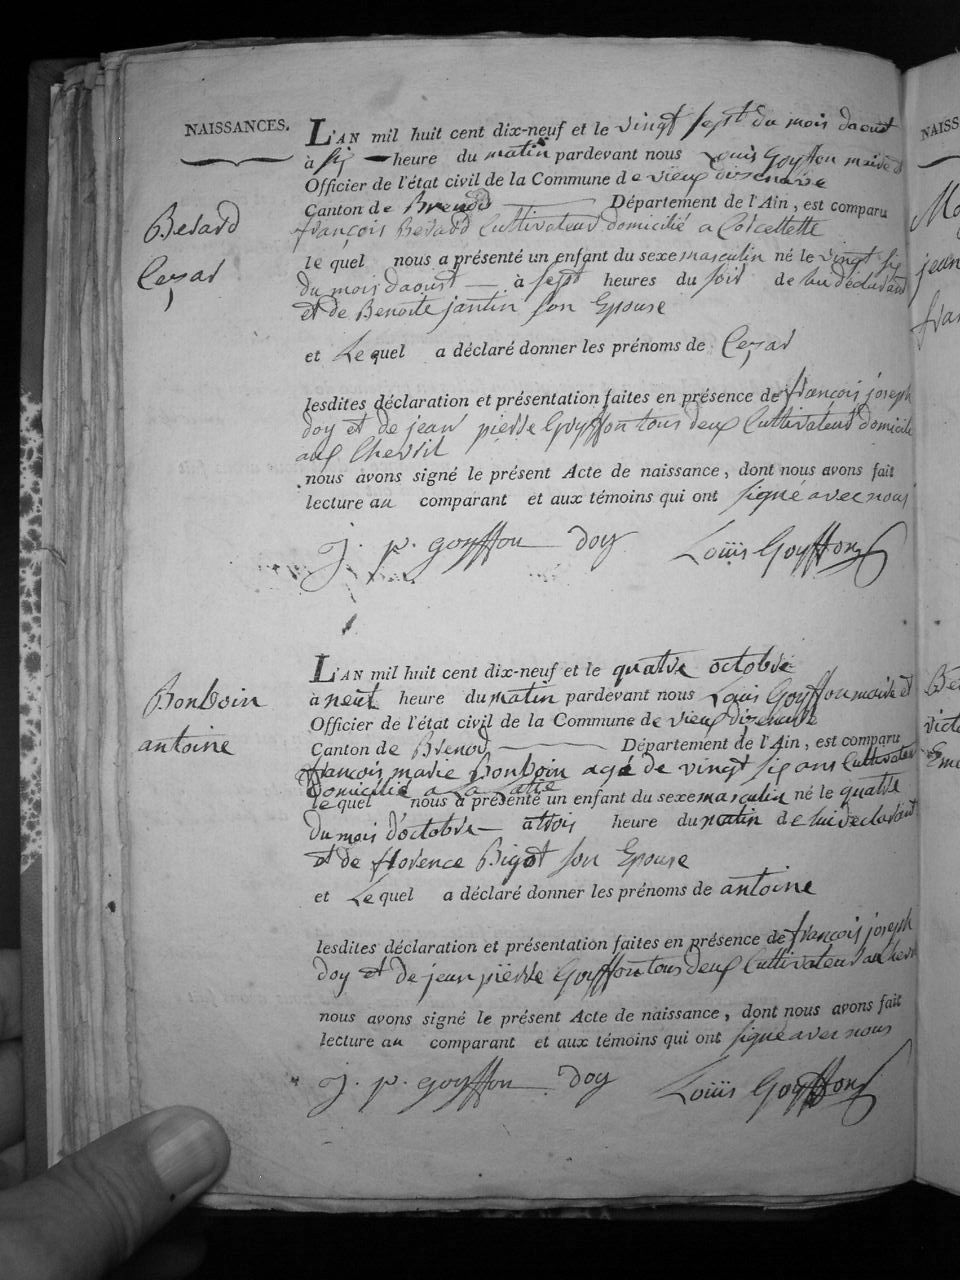 NAISSANCES.
L'AN mil huit cent dix-neuf et le vingt sept du mois daoust
à six heure du matin pardevant nous Louis Goyffon maire et
Officier de l'état civil de la Commune de vieux disenave
Canton de Brenod Département de l'Ain, est comparu
françois Berard Cultivateur domicilié a Corcellette
Berard
le quel nous a présenté un enfant du sexe masculin né le vingt six
Cezar
du mois daoust à sept heures du soir de lui déclarant
et de Benoite jantin son Epouse
et Le quel a déclaré donner les prénoms de Cezar
lesdites déclaration et présentation faites en présence de françois joseph
doy et de jean pierre Goyffon tous deux Cultivateurs domicile
aux Chevril
nous avons signé le présent Acte de naissance, dont nous avons fait
lecture au comparant et aux témoins qui ont signé avec nous
J. p. goyffon doy Louis Goyffon
L'AN mil huit cent dix-neuf et le quatre octobre
à neuf heure du matin pardevant nous Louis Goyffon maire et
Officier de l'état civil de la Commune de vieux disenave
Canton de Brenod Département de l'Ain, est comparu
françois marie Bonboin agé de vingt six ans Cultivateur
Domicilié a La
Bonboin
antoine
le quel nous a présenté un enfant du sexe masculin né le quatre
du mois d'octobre a trois heure du matin de lui déclarant
et de florence Bigot son Epouse
et Le quel a déclaré donner les prénoms de antoine
lesdites déclaration et présentation faites en présence de françois joseph
doy et de jean pierre Goyffon tous deux Cultivateurs au
nous avons signé le présent Acte de naissance, dont nous avons fait
lecture au comparant et aux témoins qui ont signé avec nous
J. p. goyffon doy Louis Goyffon